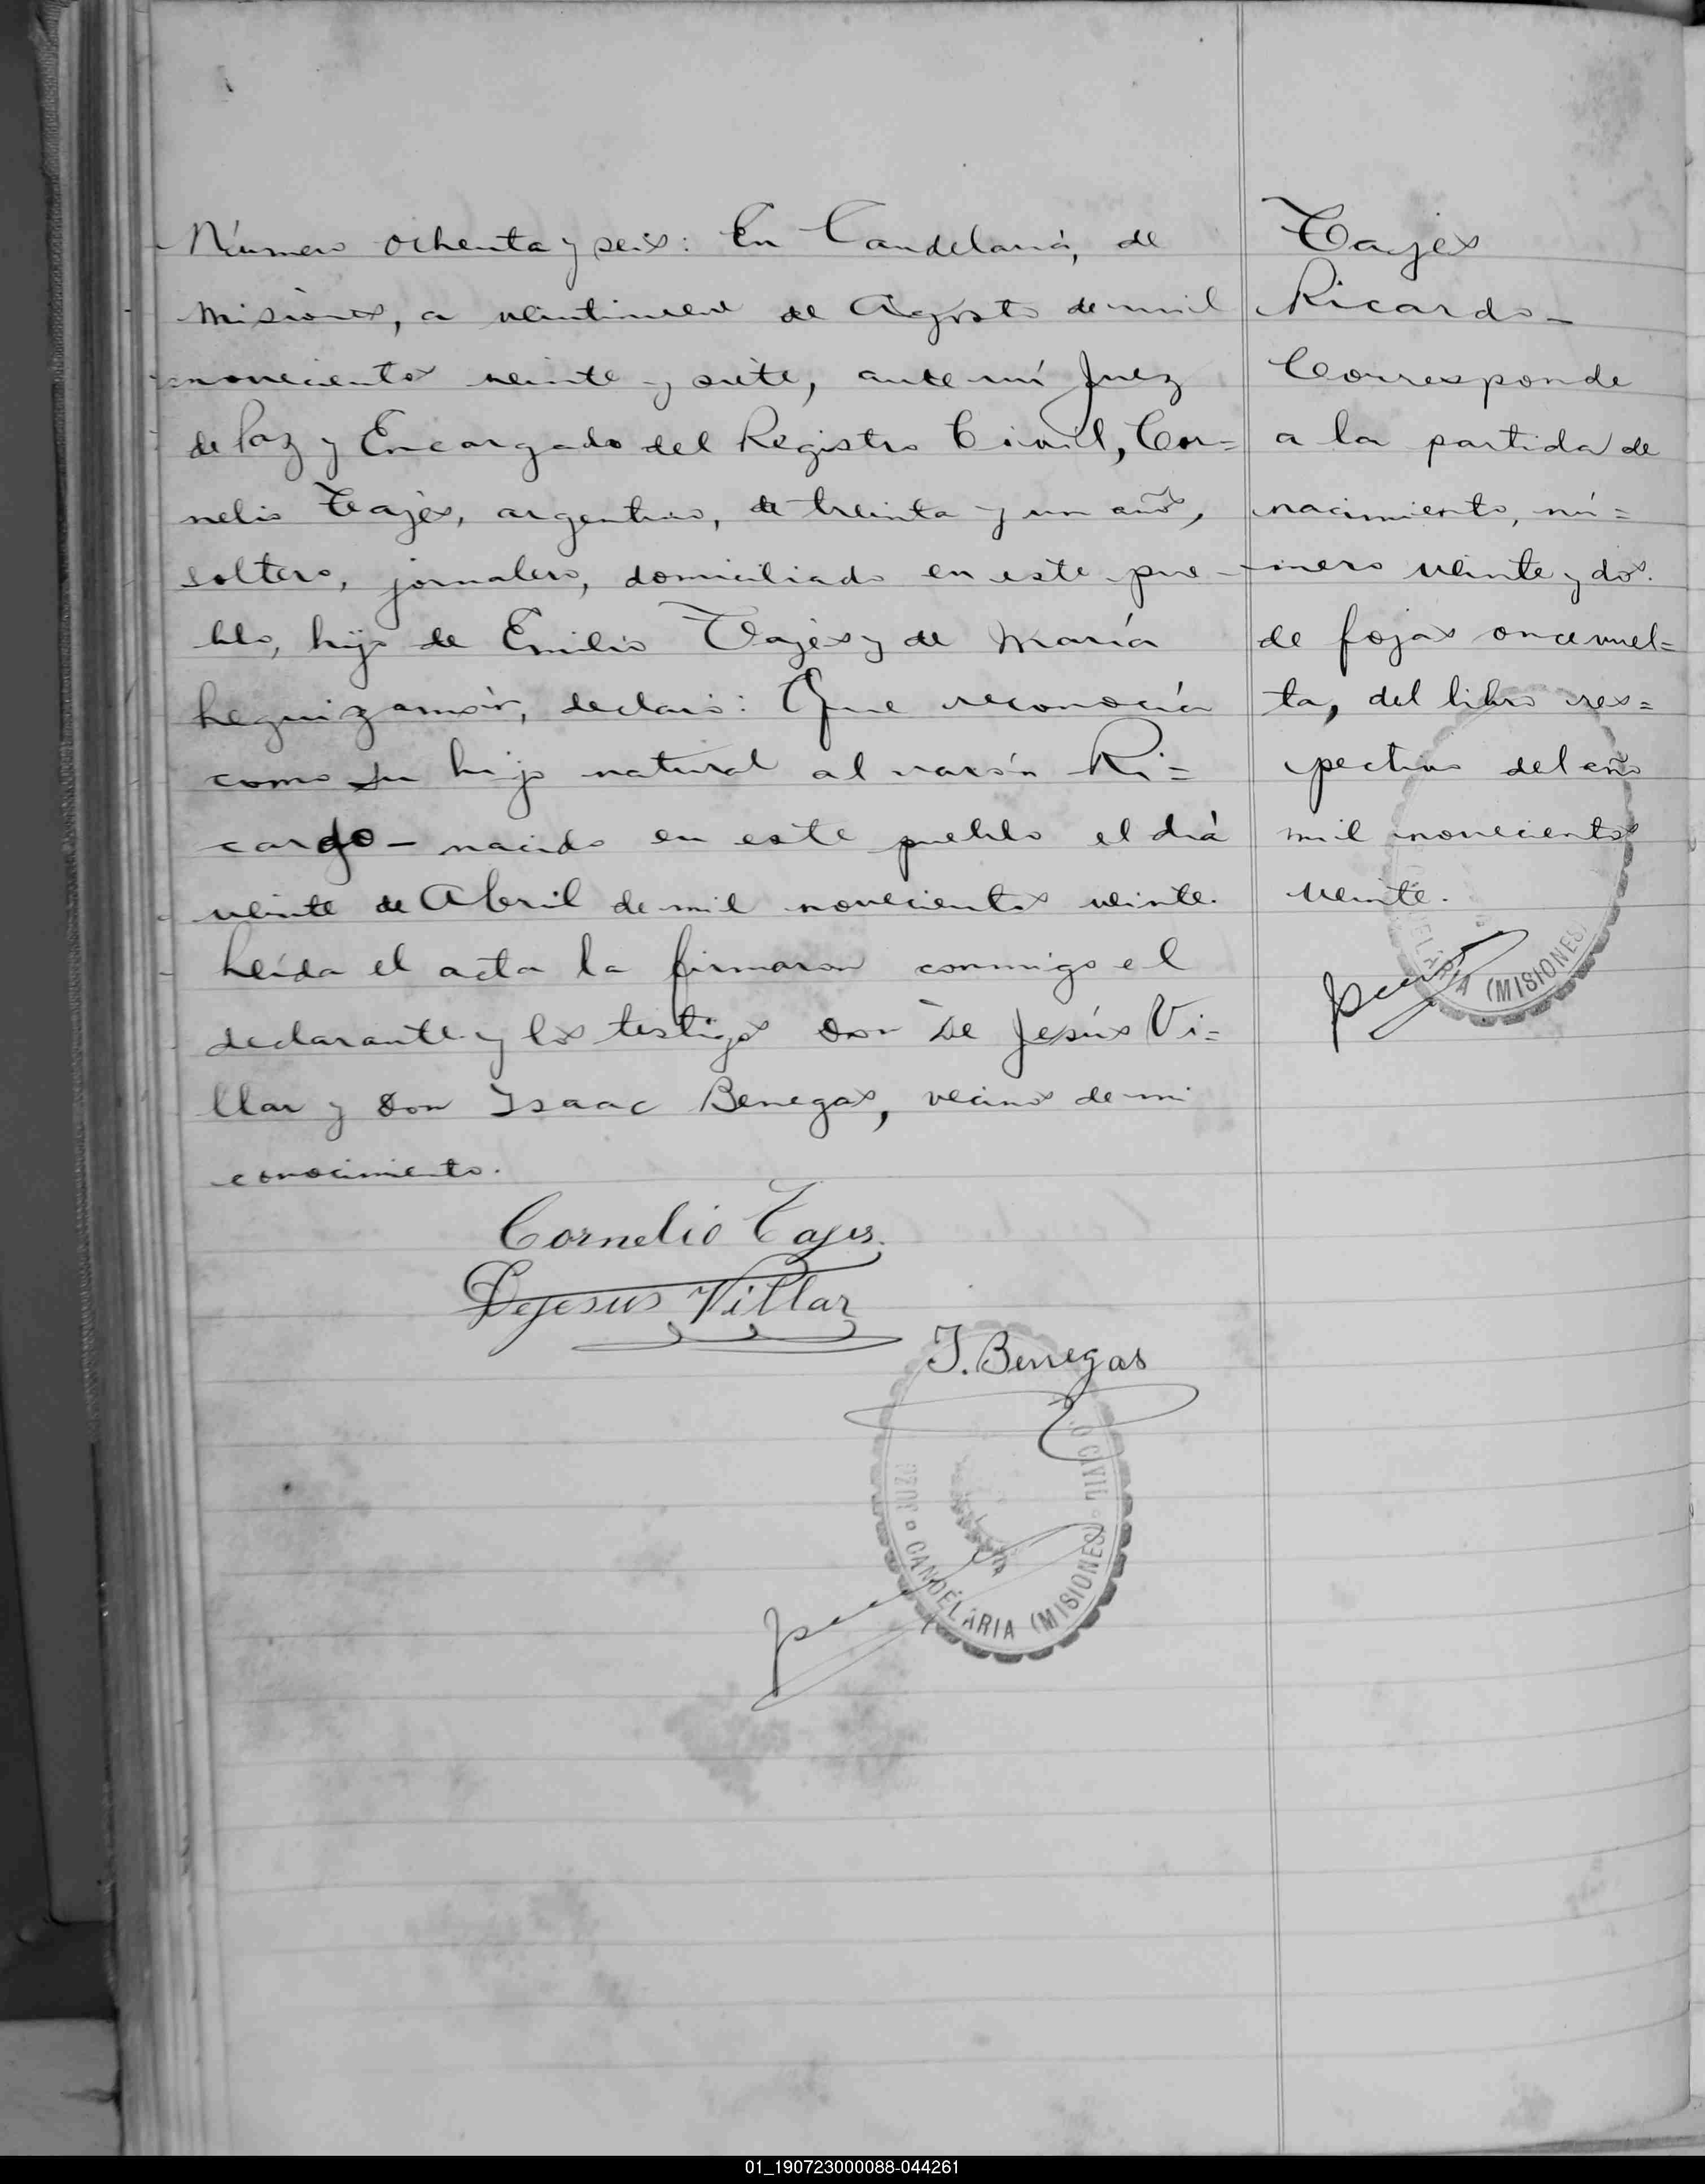 Número ochenta y seis: En Candelaria, de
Misiones, a veintinueve de Agosto de mil
novecientos veinte y siete, ante mí Juez
de Paz y Encargado del Registro Civil, Cor=
nelio Tajes, argentino, de treinta y un años,
soltero, jornalero, domiciliado en este pue-
blo, hijo de Emilio Tajes y de María
Leguizamón, declaró: Que reconocía
como su hijo natural al varón Ri=
cardo - nacido en este pueblo el día
veinte de Abril de mil novecientos veinte.
Leída el acta la firmaron conmigo el
declarante y los testigos Don De Jesús Vi=
llar y Don Isaac Benegas, vecinos de mi
conocimiento.
Cornelio Tajes.
Dejesus Villar
I. Benegas
JUZG
O CIVIL
CANDELARIA (MISIONES)
Tajes
Ricardo -
Corresponde
a la partida de
nacimiento, nú=
mero veinte y dos.
de fojas once vuel=
ta, del libro res=
pectivo del año
mil novecientos
veinte.
DELARIA (MISIONES)
01_190723000088-044261